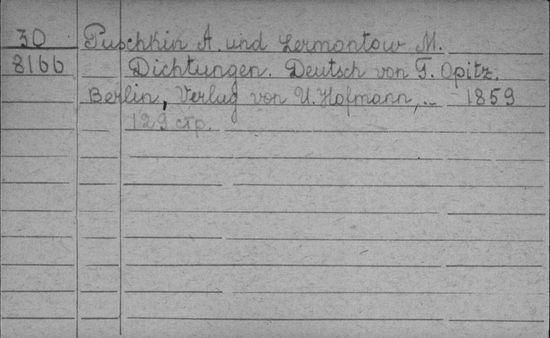 30 Puschkin A. und Lermontow M.
8166 Dichtungen. Deutsch von T. Opitz.
Berlin, Verlag von A. Hofmann, .. 1859
129 стр.